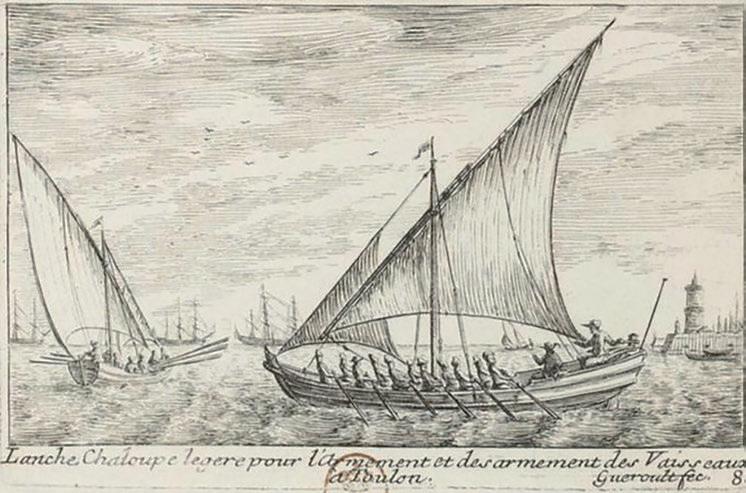 Lanche, Chaloupe legere pour l'Armement et desarmement des Vaisseaux
a Toulon.
Gueroult fec. 8